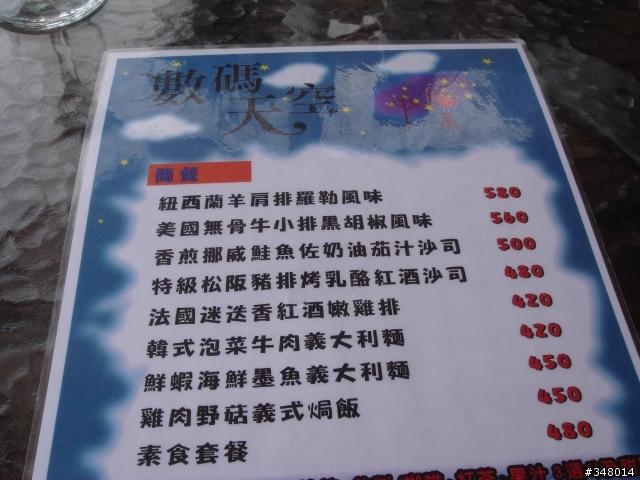 數碼天空
簡餐
紐西蘭羊肩排羅勒風味 580
美國無骨牛小排黑胡椒風味 560
香煎挪威鮭魚佐奶油茄汁沙司 500
特級松阪豬排烤乳酪紅酒沙司 480
法國迷迭香紅酒嫩雞排 420
韓式泡菜牛肉義大利麵 420
鮮蝦海鮮墨魚義大利麵 450
雞肉野菇義式焗飯 450
素食套餐 480
紅茶
#348014